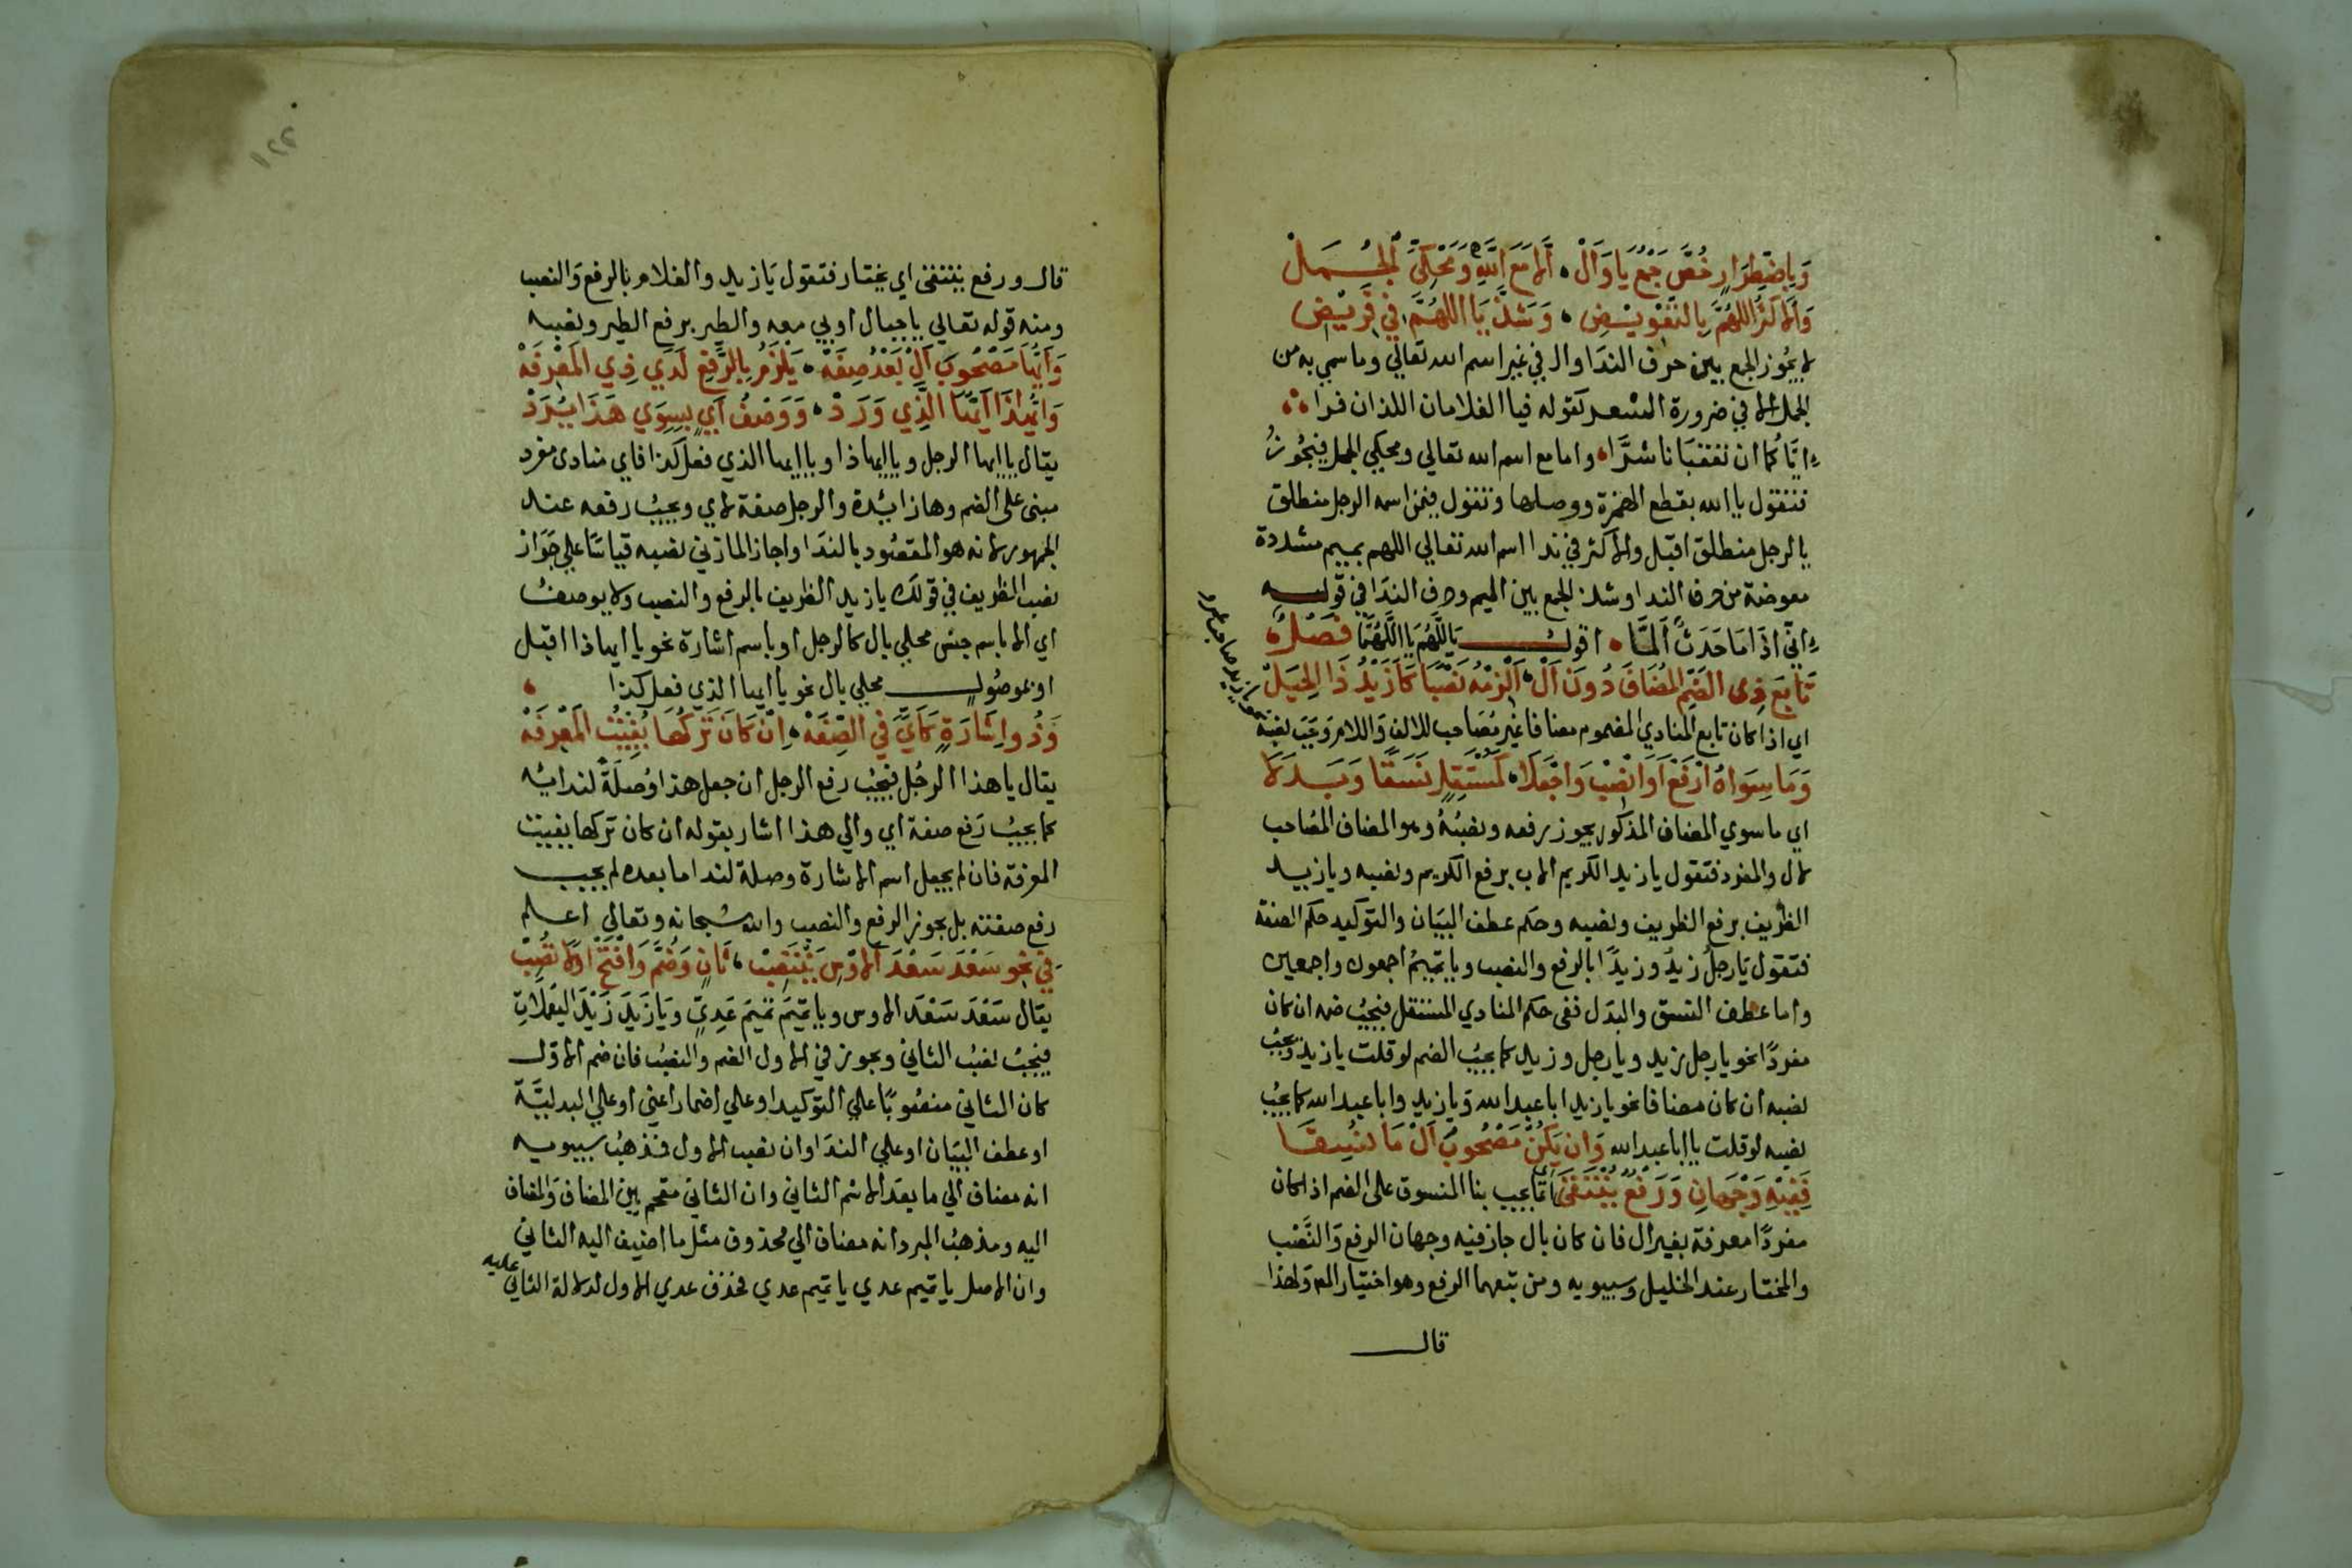 وَبِاضْطِرَارٍ خُصَّ جَمْعُ يَا وَأَلْ ، اِلّا مَعَ اللَّهِ وَمَحْكِيِّ الجُمَلْ
وَالاكْثَرُ اللَّهُمَّ بِالتَّعْوِيْضِ ، وَشَذَّ يَا اللَّهُمَّ فِي قَرِيْضِ
لا يجُوز الجمع بين حرف الندَا وال في غير اسم الله تعالي وما سمي به من
الجمل الا في ضرورة الشعر كقوله فيا الغلامان اللذان فرا
اِيّاكما ان تعقبَانا شرَّا وامامع اسم الله تعالي ومحكي الجمل فيجُوزُ
فتقول يا الله بقطع الهمزة ووصلها وتقول فيمن اسمه الرجل منطلق
يا الرجل منطلق اقبل والاكثر في ندا اسم الله تعالي اللهم بميم مشددة
معوضة من حرف الندا وشذ الجمع بين الميم وحرف الندَا في قوله
اِنّي اذَا مَا حَدَثٌ اَلَمَّا ، اقول يَا اللَّهُمَّ يَا اللَّهُمَّا فَصْلٌ
تَابِعَ ذِي الضَّمِّ المُضَافَ دُونَ اَلْ ، اَلْزِمْهُ نَصْبًا كَاَزَيْدُ ذَا الحِيَلْ
اي اذا كان تابع المنادي المضموم مضافا غير مُصَاحب للالف وَاللام وَجَبَ نصبه
نحو يا زيد صاحب عمرو
وَمَا سِوَاهُ ارْفَعْ اَوِ انْصِبْ وَاجْعَلَا ، كَمُسْتَقِلٍّ نَسَقًا وَبَدَلَا
اي ما سوي المضاف المذكور يجوز رفعه ونصبُهُ وهو المضاف المصَاحب
لال والمفرد فتقول يا زيد الكريم الاب برفع الكريم ونصبه ويا زيد
الظريف برفع الظريف ونصبه وحكم عطف البيَان والتوكيد حكم الصفة
فتقول يَا رجلُ زيدٌ وزيدًا بالرفع والنصب ويا تميمُ اجمعون واجمعين
واما عطف النسق والبدَل ففي حكم المنادي المستقل فيجبُ ضمه ان كان
مفردًا نحو يا رجل زيد ويا رجل وزيد كما يجبُ الضم لو قلت يا زيد ويجبُ
نصبه ان كان مضافا نحو يا زيد ابا عبد الله وَيا زيد وابا عبد الله كما يجبُ
نصبه لو قلت يا ابا عبد الله وَاِن يَكُنْ مَصْحُوبَ اَلْ مَا نُسِقَا
فَفِيْهِ وَجْهَانِ وَرَفْعٌ يُنْتَقَى اي انما يجب بنا المنسوق على الضم اذا كان
مفردًا معرفة بغير ال فان كان بال جاز فيه وجهان الرفع وَالنَّصْب
والمختار عند الخليل وسيبويه ومن تبعهما الرفع وهو اختيار المص وَلهذا
قال
قال ورفع ينتقى اي يختار فتقول يَا زيد والغلام بالرفع وَالنصب
ومنه قوله تعالي يا جبال اوبي معه والطير برفع الطير ونصبه
وَاَيُّهَا مَصْحُوبَ اَلْ بَعْدُ صِفَهْ ، يَلْزَمُ بِالرَّفْعِ لَدَي ذِي المَعْرِفَهْ
وَاَيُّهَذَا اَيُّهَا الَّذِي وَرَدْ ، وَوَصْفُ اَيٍّ بِسِوَي هَذَا يُرَدّْ
يقال يا ايها الرجل ويا ايهاذا ويا ايها الذي فعل كذا فاي منادى مفرد
مبنى على الضم وها زايدة والرجل صفة لاي ويجبُ رفعه عند
الجمهور لانه هو المقصُود بالندَا واجاز المازني نصبه قياسًا علي جَوَاز
نصب الظريف في قولك يا زيد الظريف بالرفع والنصب ولا يوصفُ
اي الا باسم جنس محلي بال كالرجل او باسم اشارة نحو يا ايهاذا اقبل
او بموصُول محلي بال نحو يا ايها الذي فعل كذا
وَذُو اِشَارَةٍ كَاَيٍّ فِي الصِّفَهْ ، اِنْ كَانَ تَرْكُهَا يُفِيْتُ المَعْرِفَهْ
يقال يا هذا الرجُل فيجبُ رفع الرجل ان جعل هذا وُصلَةً لندايه
كما يجبُ رَفع صفة اي والي هذا اشار بقوله ان كان تركها يفيت
المعرفة فان لم يجعل اسم الاشارة وصلة لندا ما بعده لم يجب
رفع صفته بل يجوز الرفع والنصب والله سُبحانه وتعالي اعلم
فِي نَحْوِ سَعْدَ سَعْدَ الاَوْسِ يَنْتَصِبْ ، ثَانٍ وَضُمَّ وَافْتَحْ اَوَّلًا تُصِبْ
يقال سَعْدَ سَعْدَ الاوس ويا تَيْمَ تَيْمَ عَدِيٍّ وَيَا زَيدَ زَيْدَ اليَعْمَلَاتِ
فيجبُ نصبُ الثاني ويجوز في الاول الضم والنصبُ فان ضم الاوّل
كان الثاني منصُوبًا علي التوكيد او علي اضمار اعني او علي البدليَّة
او عطف البيَان او علي الندَا وان نصب الاول فمذهبُ سيبويه
انه مضاف الي ما بعد الاسم الثاني وان الثاني مقحم بين المضاف وَالمضاف
اليه ومذهبُ المبرد انه مضاف الي محذوف مثل ما اضيف اليه الثاني
وان الاصل يا تيم عدي يا تيم عدي فحذف عدي الاول لدلالة الثاني عليه